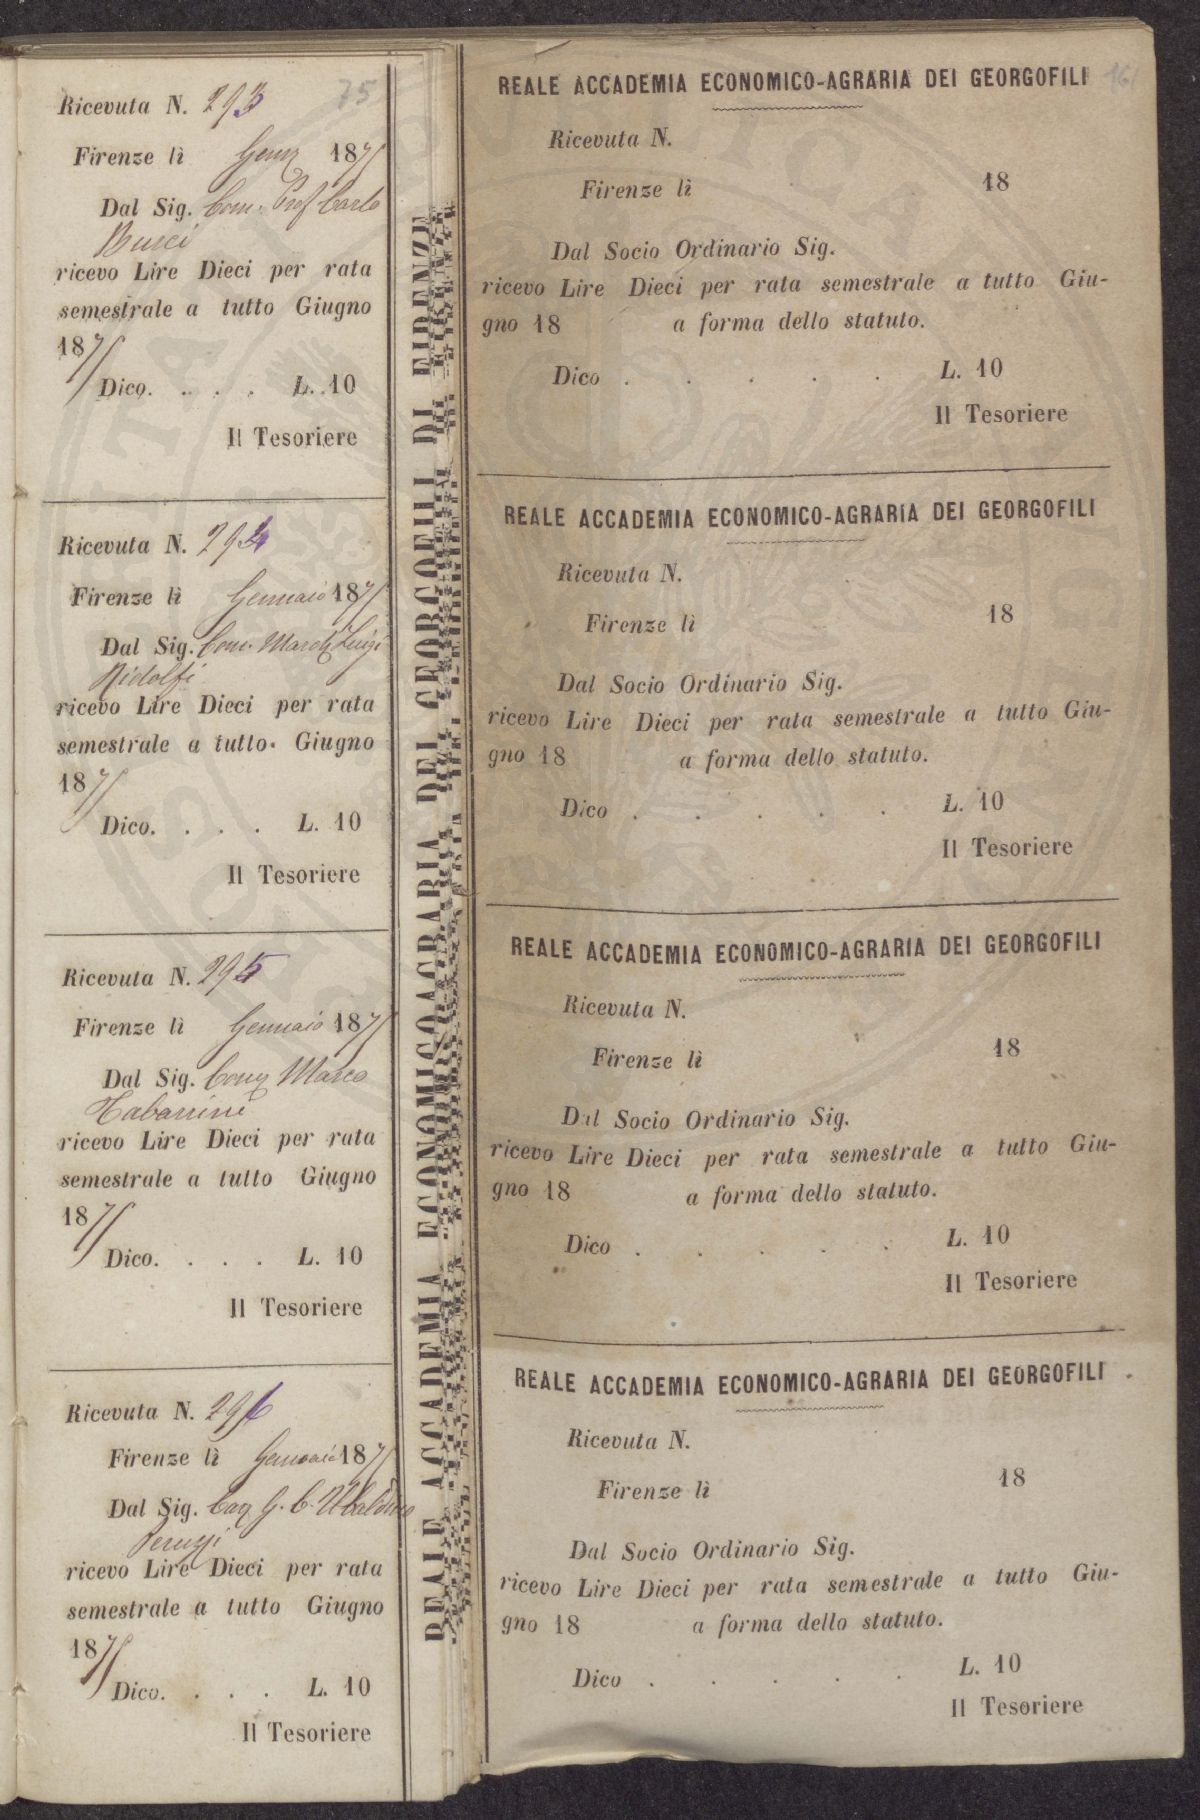 75
Ricevuta N. 293
Firenze lì Genn 1871
Dal Sig. Com. Prof Carlo
Burci
ricevo Lire Dieci per rata
semestrale a tutto Giugno
1871
Dico. . . . L. 10
Il Tesoriere
Ricevuta N. 294
Firenze lì Gennaio 1871
Dal Sig. Com. March Luigi
Ridolfi
ricevo Lire Dieci per rata
semestrale a tutto Giugno
1871
Dico. . . . L. 10
Il Tesoriere
Ricevuta N. 295
Firenze lì Gennaio 1871
Dal Sig. Comm Marco
Tabarrini
ricevo Lire Dieci per rata
semestrale a tutto Giugno
1871
Dico. . . . L. 10
Il Tesoriere
Ricevuta N. 296
Firenze lì Gennaio 1871
Dal Sig. Cav G. C. Ubaldino
Peruzzi
ricevo Lire Dieci per rata
semestrale a tutto Giugno
1871
Dico. . . . L. 10
Il Tesoriere
REALE ACCADEMIA ECONOMICO AGRARIA DEI GEORGOFILI DI FIRENZE
REALE ACCADEMIA ECONOMICO-AGRARIA DEI GEORGOFILI
Ricevuta N.
Firenze lì 18
Dal Socio Ordinario Sig.
ricevo Lire Dieci per rata semestrale a tutto Giu-
gno 18 a forma dello statuto.
Dico . . . . . L. 10
Il Tesoriere
REALE ACCADEMIA ECONOMICO-AGRARIA DEI GEORGOFILI
Ricevuta N.
Firenze lì 18
Dal Socio Ordinario Sig.
ricevo Lire Dieci per rata semestrale a tutto Giu-
gno 18 a forma dello statuto.
Dico . . . . . L. 10
Il Tesoriere
REALE ACCADEMIA ECONOMICO-AGRARIA DEI GEORGOFILI
Ricevuta N.
Firenze lì 18
Dal Socio Ordinario Sig.
ricevo Lire Dieci per rata semestrale a tutto Giu-
gno 18 a forma dello statuto.
Dico . . . . . L. 10
Il Tesoriere
REALE ACCADEMIA ECONOMICO-AGRARIA DEI GEORGOFILI
Ricevuta N.
Firenze lì 18
Dal Socio Ordinario Sig.
ricevo Lire Dieci per rata semestrale a tutto Giu-
gno 18 a forma dello statuto.
Dico . . . . . L. 10
Il Tesoriere